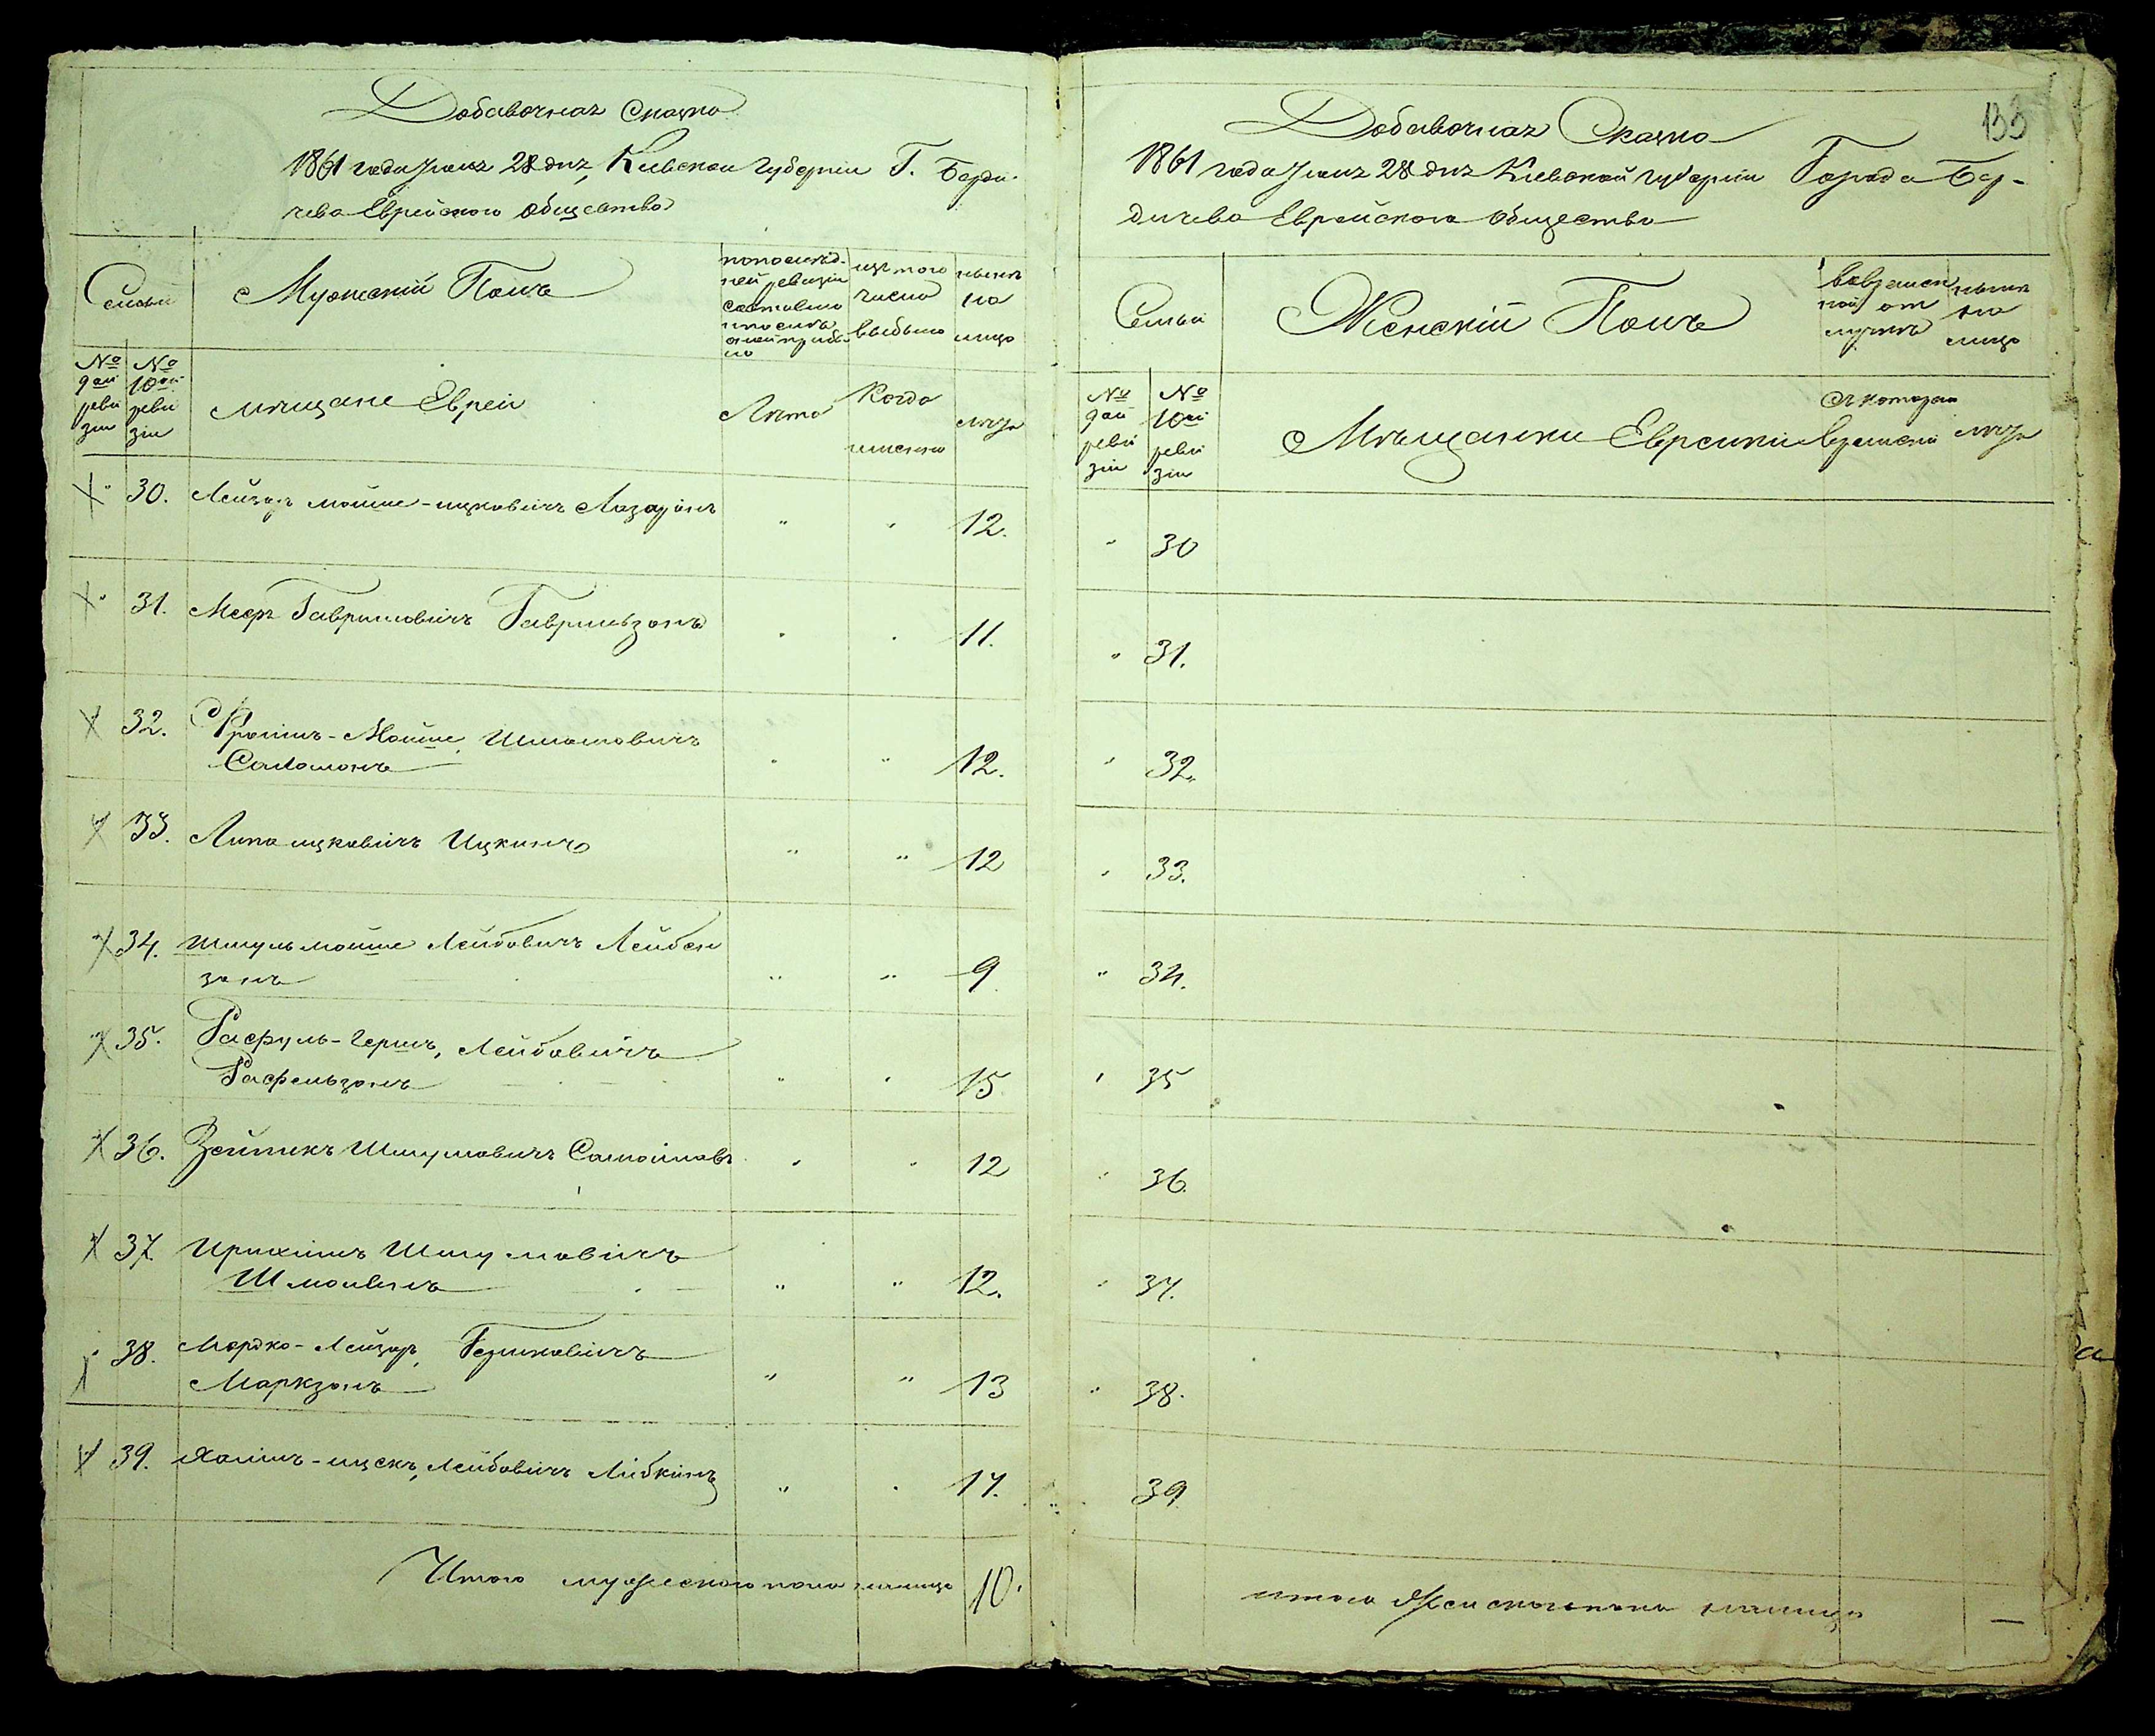 Добавочная Сказка
1861 года Июня 28 дня, Киевской Губернии Г. Берди-
чева Еврейского Общества
Семьи
Мужескій Полъ
по послѣд-
ней ревизіи
состояло
и послѣ
оной прибы-
ло
изъ того
числа
выбыло
нынѣ
на
лицо
№ 9ой ревизіи
№ 10ой ревизіи
мѣщане Евреи
Лѣта
Когда
именно
лѣта
30. Лейзоръ мошко-ицковичъ Лазаринъ " " 12.
31. Мееръ Гавриловичъ Гаврильзонъ " " 11.
32. Фроимъ-Мойше, Шлиомовичъ
Саломонъ " " 12.
33. Липа ицковичъ Ицкинъ " " 12
34. Шмуль мойше Лейбовичъ Лейбен
зонъ " " 9
35. Рафуль-Гершъ, Лейбовичъ
Рафельзонъ " " 15
36. Зейликъ Шмулювичъ Самойловъ " " 12
37. Ирихимъ Шмулювичъ
" " 12.
38. Мордко-Лейзоръ, Бершковичъ
Маркзонъ " " 13
39. Хаимъ-ицекъ, Лейбовичъ Либкинъ " " 17.
Итого мужескаго пола налицо 10.
133
Добавочная Сказка
1861 года Июня 28 дня Киевской Губерніи Города Бер-
дичева Еврейского Общества
Семьи
Женскій Полъ
во времен
ной от
лучкѣ
нынѣ
на
лицо
№ 9ой ревизіи
№ 10ой ревизіи
Мѣщанки Еврейки
съ котораго
времени
лѣта
" 30
" 31.
" 32.
" 33.
" 34.
" 35
" 36.
" 37.
" 38.
39
итого Женскаго пола налицо —